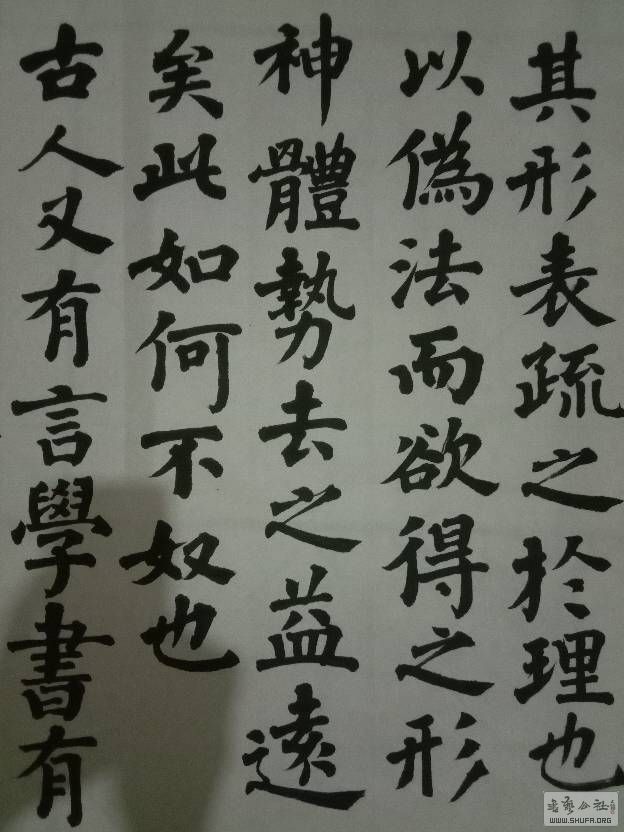 其形表疏之於理也
以偽法而欲得之形
神體勢去之益遠
矣此如何不奴也
古人又有言學書有
書藝公社
WWW.SHUFA.ORG